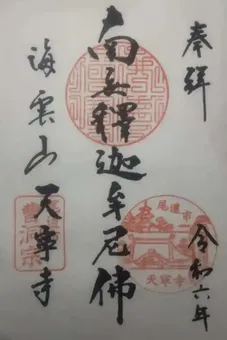 奉拜
南無釋迦牟尼佛
海雲山
天寧寺
令和六年
曹洞宗
尾道市
天寧寺